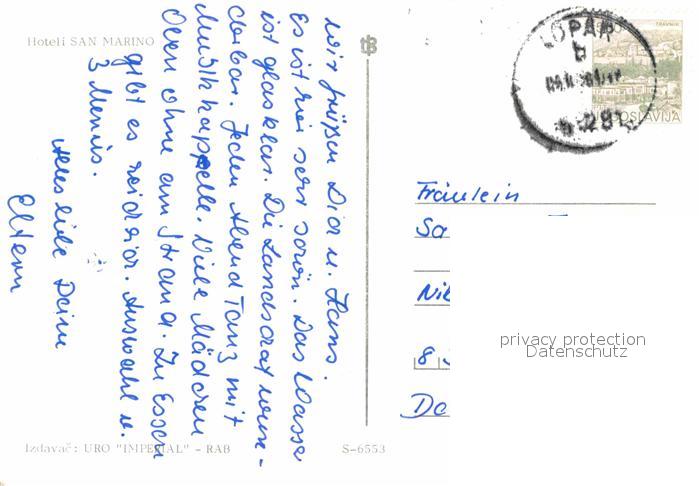 Hoteli SAN MARINO
Wir grüßen Dich u. Hans.
Es ist hier sehr schön. Das Wasser
ist glasklar. Die Landschaft wun-
derbar. Jeden Abend Tanz mit
Musikkappelle. Viele Mädchen
Oben ohne am Strand. Zu Essen
gibt es reichlich. Auswahl v.
3 Menüs.
Alles liebe Deine
Eltern
Izdavač: URO "IMPERIAL" - RAB
S-6553
TRAVNIK
JUGOSLAVIJA
LOPAR
Fräulein
Sa
Nik
8
Da
privacy protection
Datenschutz